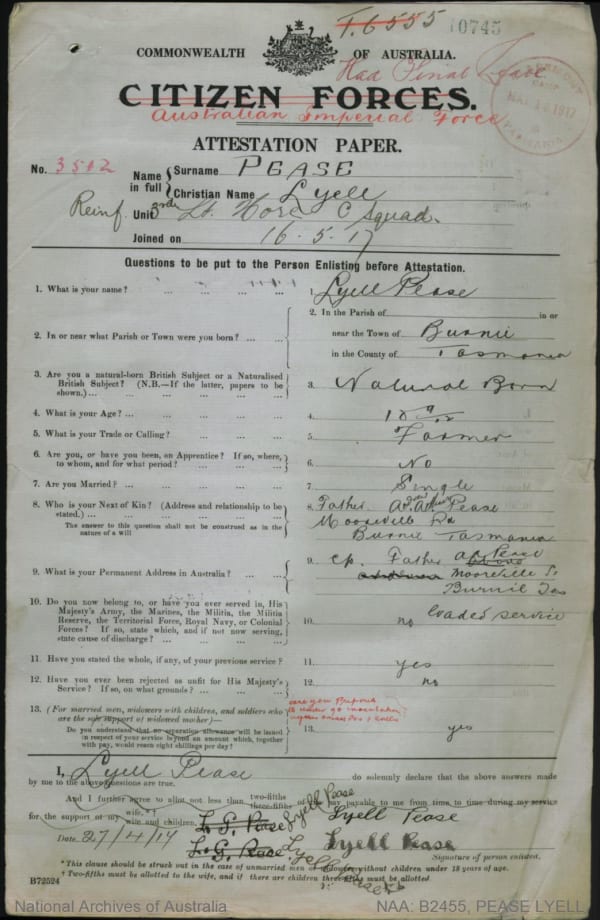 T. 6555 10745
COMMONWEALTH OF AUSTRALIA.
Had Final Leave
CLAREMONT CAMP MAY 16 1917 TASMANIA
CITIZEN FORCES.
Australian Imperial Force
ATTESTATION PAPER.
No. 3502
Name in full { Surname PEASE
Christian Name Lyell
Reinf. Unit 3rd Lt. Horse C Squad.
Joined on 16.5.17
Questions to be put to the Person Enlisting before Attestation.
1. What is your name? ... ... ... ... 1. Lyell Pease
2. In or near what Parish or Town were you born? ... ... 2. In the Parish of in or
near the Town of Burnie
in the County of Tasmania
3. Are you a natural-born British Subject or a Naturalised
British Subject? (N.B.—If the latter, papers to be
shown.)... ... ... ... 3. Natural Born
4. What is your Age? ... ... ... ... 4. 18
5. What is your Trade or Calling? ... ... ... 5. Farmer
6. Are you, or have you been, an Apprentice? If so, where,
to whom, and for what period? ... ... ... 6. No
7. Are you Married? ... ... ... ... 7. Single
8. Who is your Next of Kin? (Address and relationship to be
stated.) ... ... ... ...
The answer to this question shall not be construed as in the
nature of a will
8. Father Pease
Mooreville Rd
Burnie Tasmania
9. What is your Permanent Address in Australia? ... ...
9. Father Pease
Mooreville
Burnie Tas
10. Do you now belong to, or have you ever served in, His
Majesty's Army, the Marines, the Militia, the Militia
Reserve, the Territorial Force, Royal Navy, or Colonial
Forces? If so, state which, and if not now serving,
state cause of discharge? ... ... ... 10. no service
11. Have you stated the whole, if any, of your previous service? 11. yes
12. Have you ever been rejected as unfit for His Majesty's
Service? If so, on what grounds? ... ... ... 12. no
13. (For married men, widowers with children, and soldiers who
are the sole support of widowed mother)—
Do you understand that no separation allowance will be issued
in respect of your service beyond an amount which, together
with pay, would reach eight shillings per day?
are you prepared
to undergo inoculation
13. yes
I, Lyell Pease do solemnly declare that the above answers made
by me to the above questions are true.
And I further agree to allot not less than two-fifths three-fifths of the pay payable to me from time to time during my service
for the support of my wife.*† wife and children. L. G. Pease Lyell Pease Lyell Pease
Date 27/4/17 L. G. Pease Lyell Pease Lyell Pease
Signature of person enlisted.
* This clause should be struck out in the case of unmarried men or widowers without children under 18 years of age.
† Two-fifths must be allotted to the wife, and if there are children three-fifths must be allotted.
B72524
National Archives of Australia NAA: B2455, PEASE LYELL